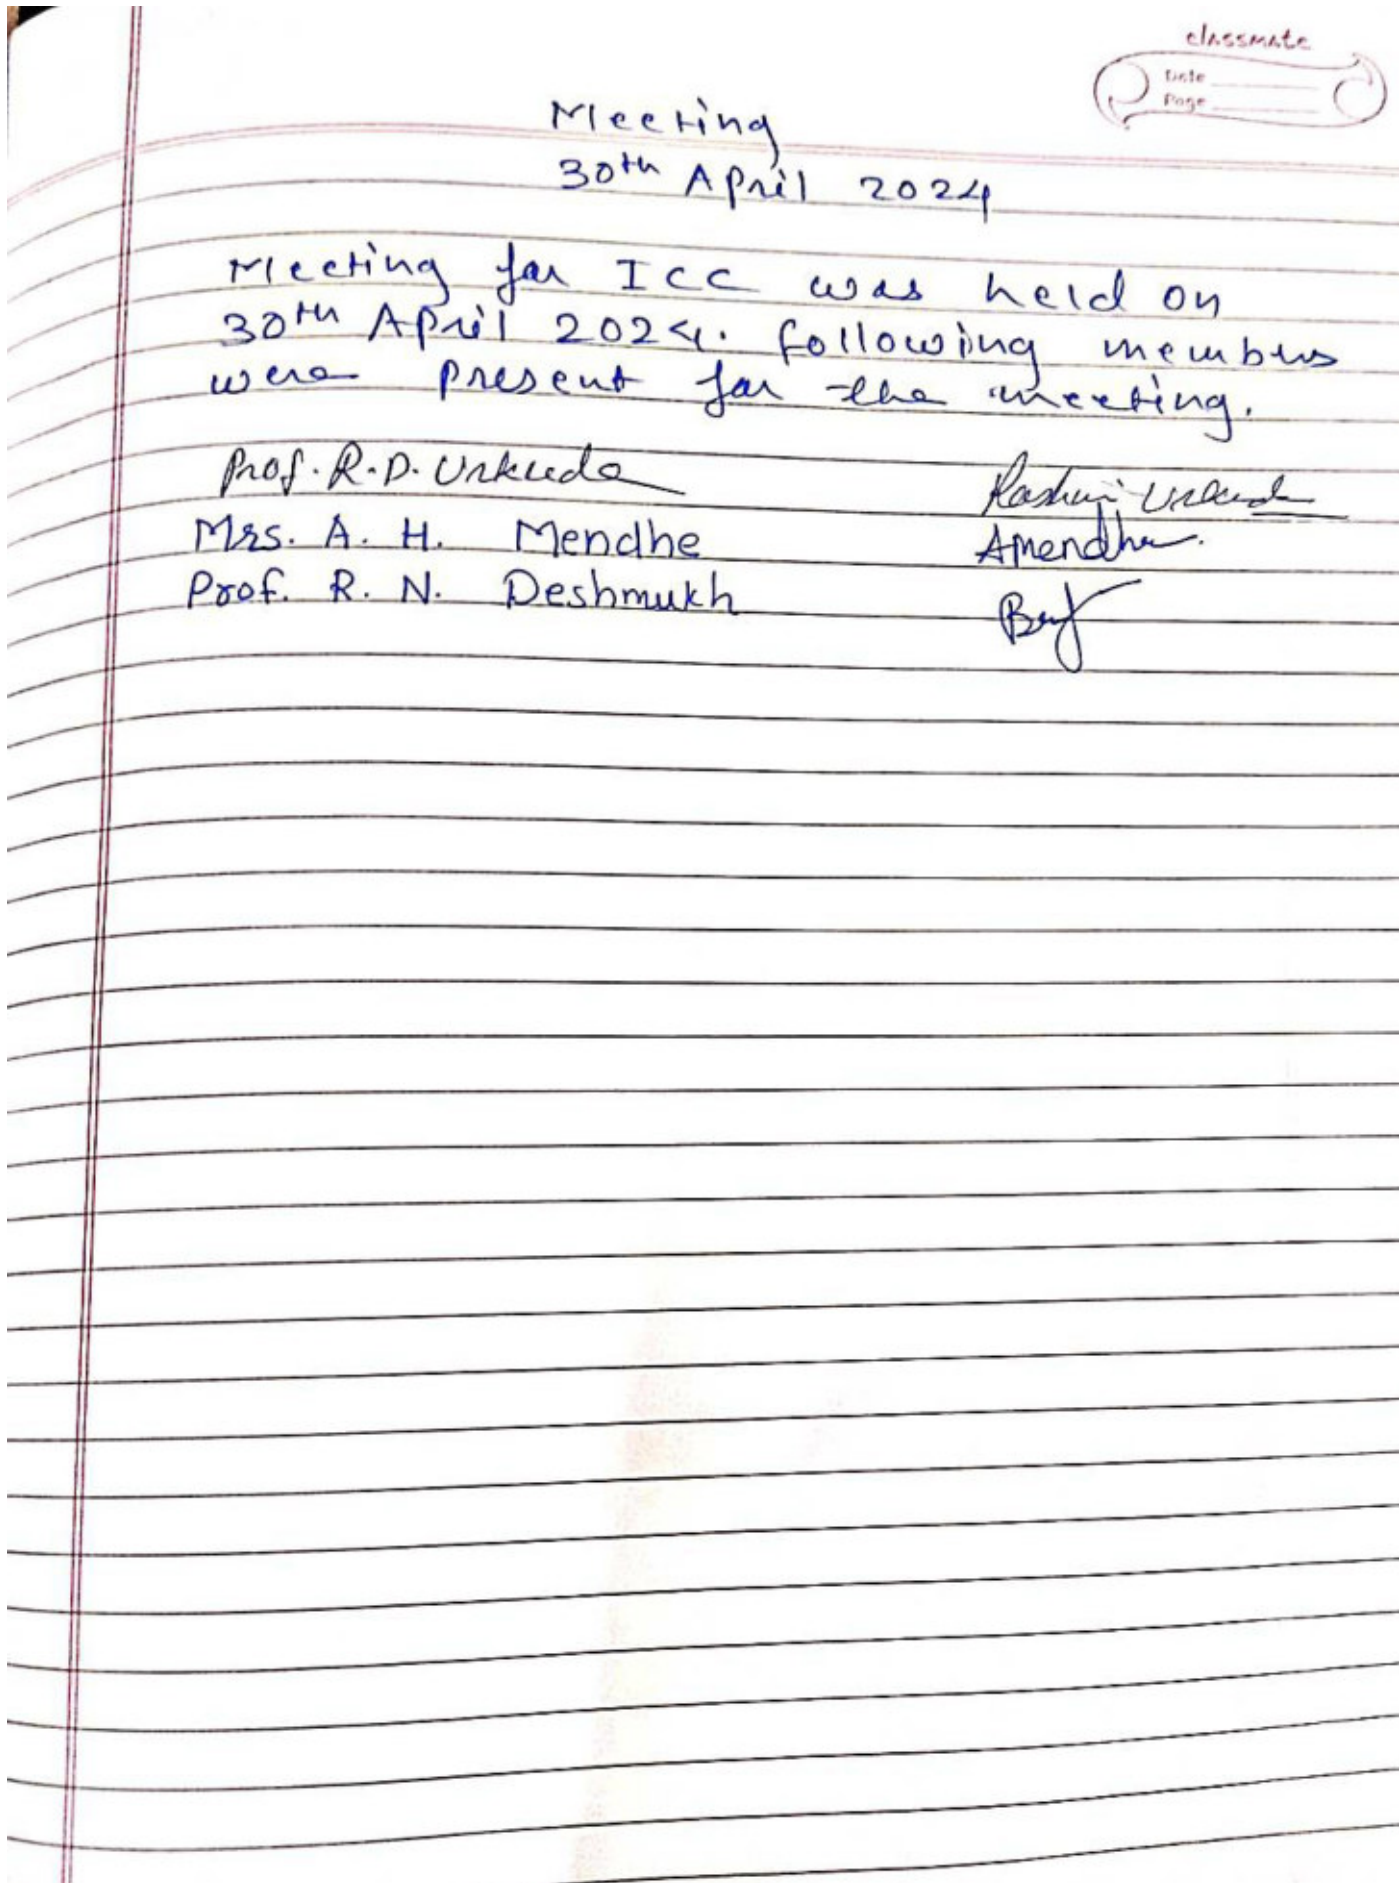 classmate
Date
Page
Meeting
30th April 2024
Meeting for ICC was held on
30th April 2024. Following members
were present for the meeting.
Prof. R.D. Urkude Rashmi Urkude
Mrs. A. H. Mendhe Amendhe.
Prof. R. N. Deshmukh